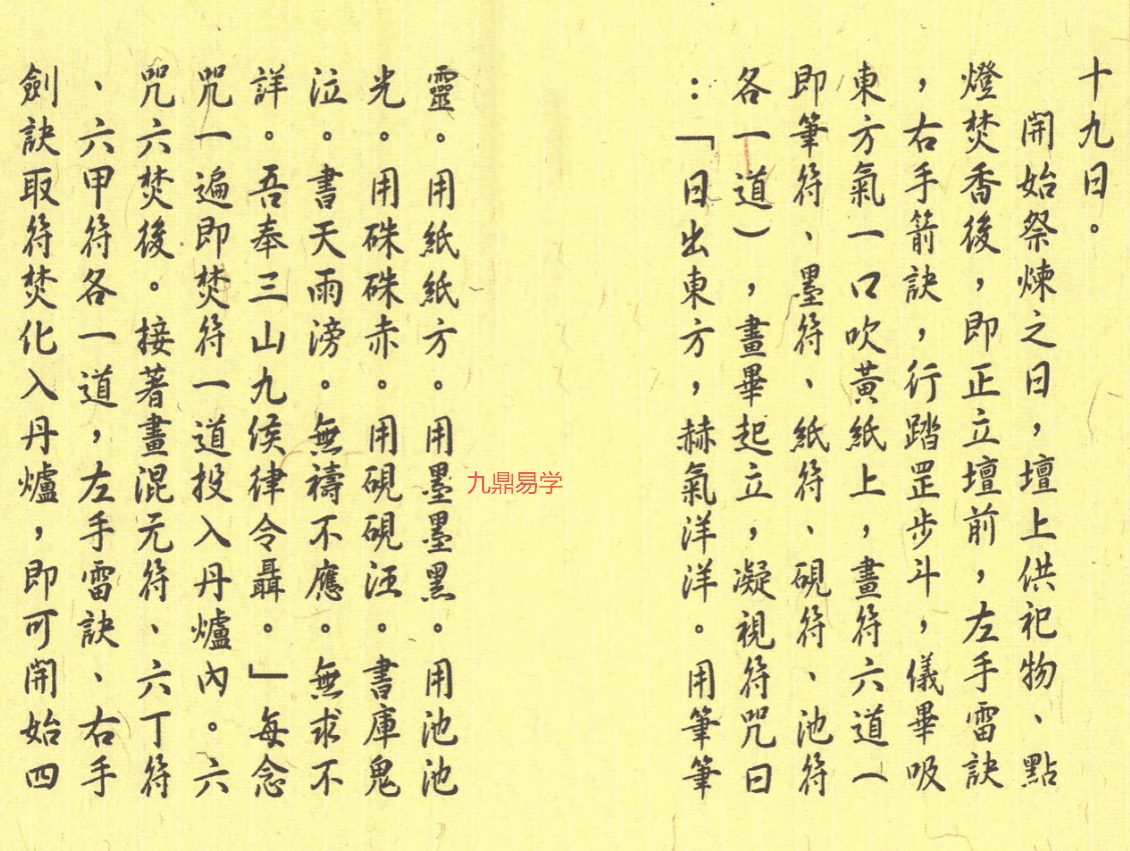 十九日。
開始祭煉之日，壇上供祀物、點
燈焚香後，即正立壇前，左手雷訣
，右手箭訣，行踏罡步斗，儀畢吸
東方氣一口吹黃紙上，畫符六道（
即筆符、墨符、紙符、硯符、池符
各一道），畫畢起立，凝視符咒曰
：「日出東方，赫氣洋洋。用筆筆
靈。用紙紙方。用墨墨黑。用池池
光。用硃硃赤。用硯硯汪。書庫鬼
泣。書天雨滂。無禱不應。無求不
詳。吾奉三山九侯律令聶。」每念
咒一遍即焚符一道投入丹爐內。六
咒六焚後。接著畫混元符、六丁符
、六甲符各一道，左手雷訣、右手
劍訣取符焚化入丹爐，即可開始四
九鼎易学